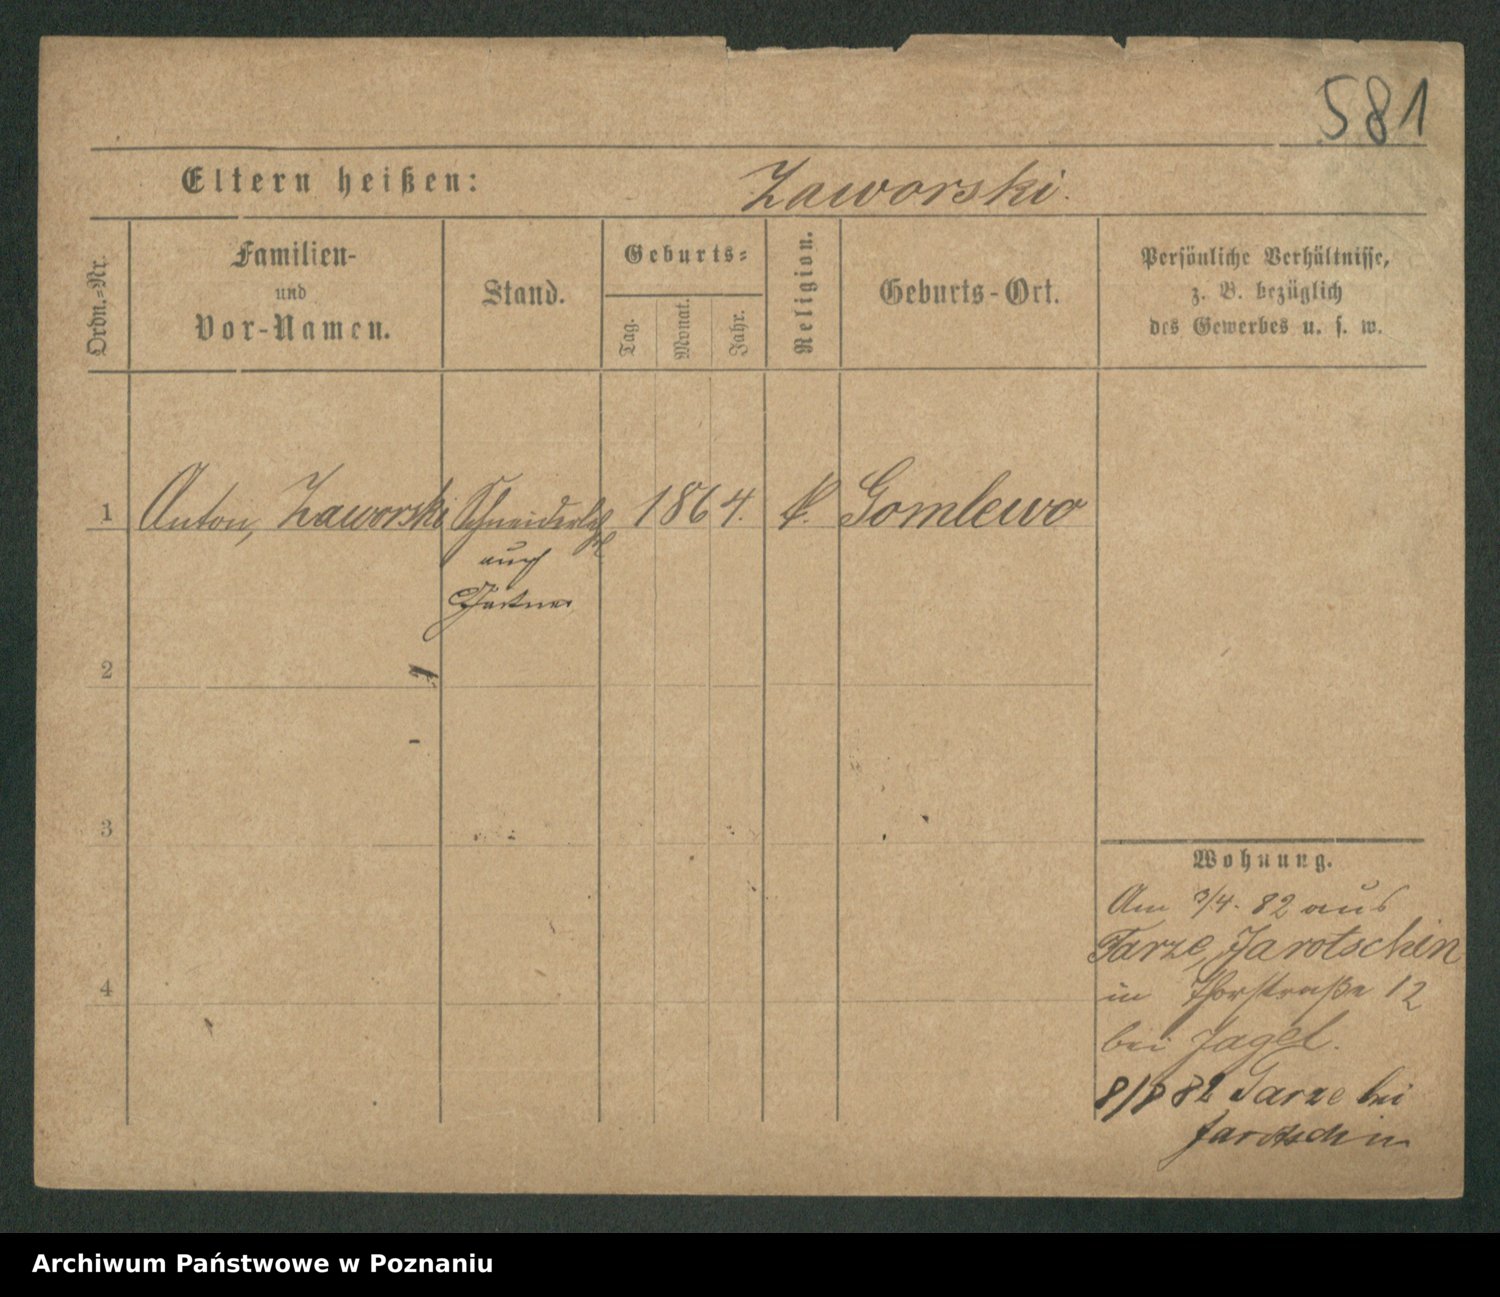 581
Eltern heißen: Zaworski.
Ordn.=Nr.
Familien-
und
Vor-Namen.
Stand.
Geburts=
Tag.
Monat.
Jahr.
Religion.
Geburts-Ort.
Persönliche Verhältnisse,
z. B. bezüglich
des Gewerbes u. s. w.
1 Anton, Zaworski 1864. k. Gomlewo
auch
Gärtner
2
3
4
Wohnung.
Am 3/4. 82 aus
Tarze, Jarotschin
in Thorstraße 12
bei Jagel.
8/8 82 Tarze bei
Jarotschin
Archiwum Państwowe w Poznaniu